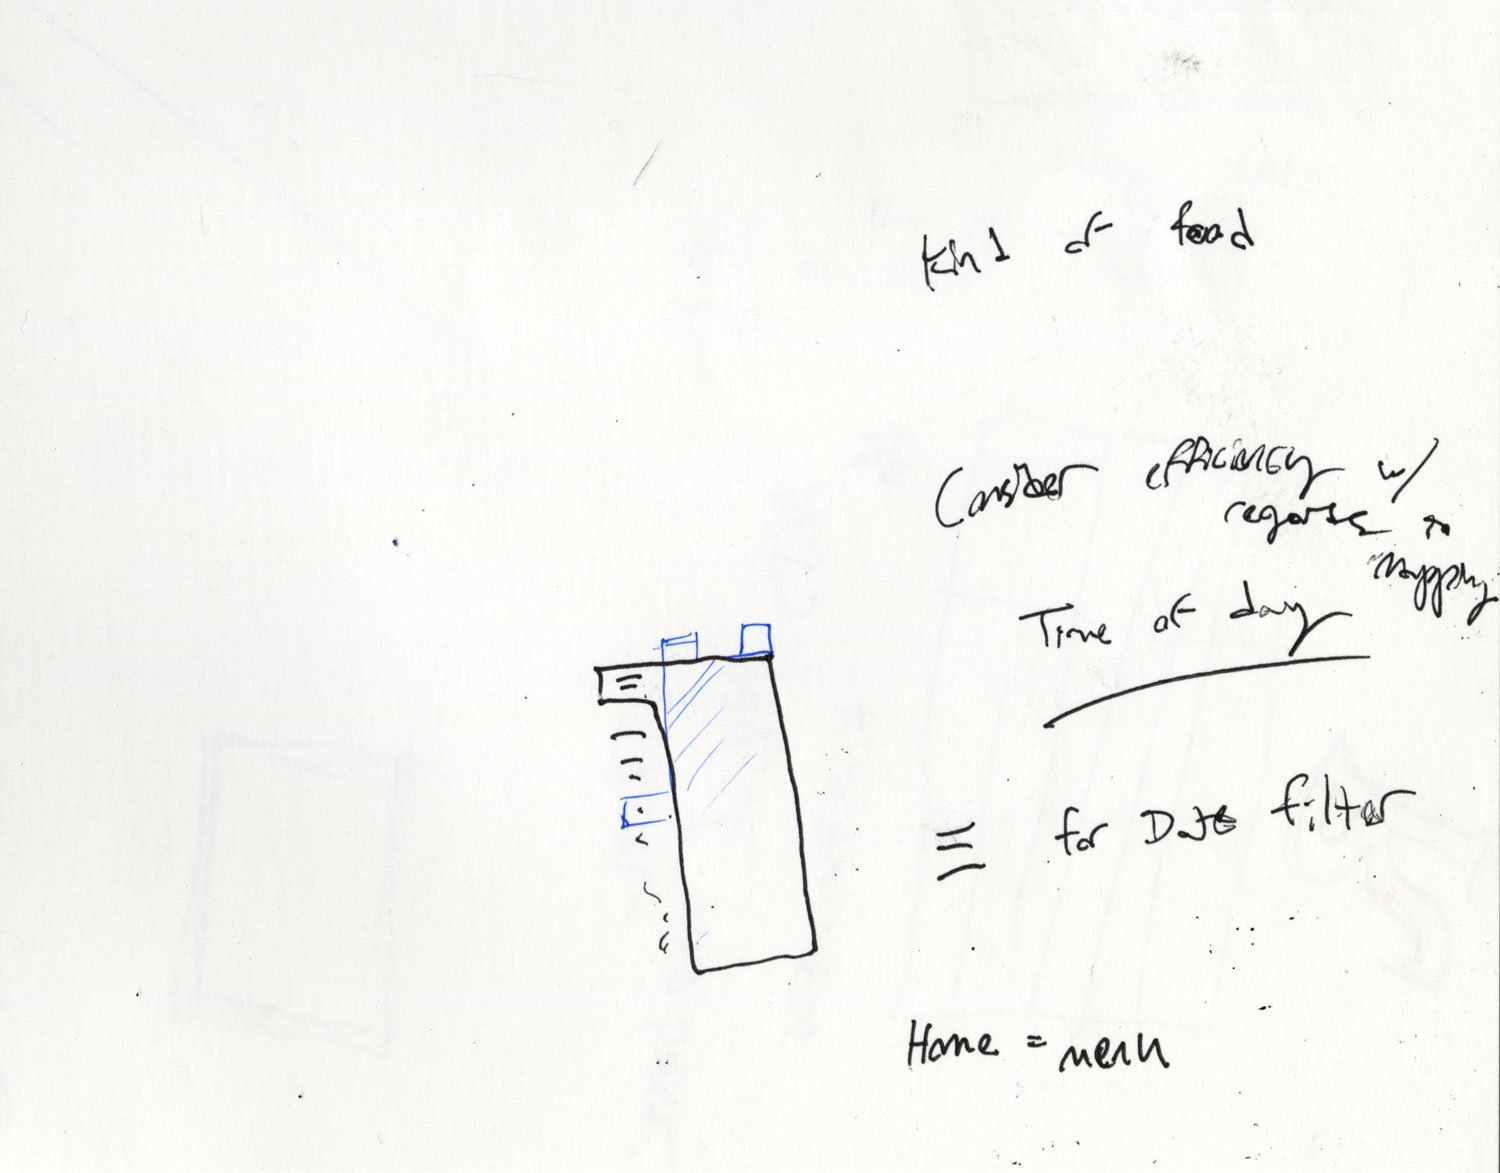 Kind of food
Consider efficiency w/
regards to
mapping
Time of day
for Date filter
Home = menu